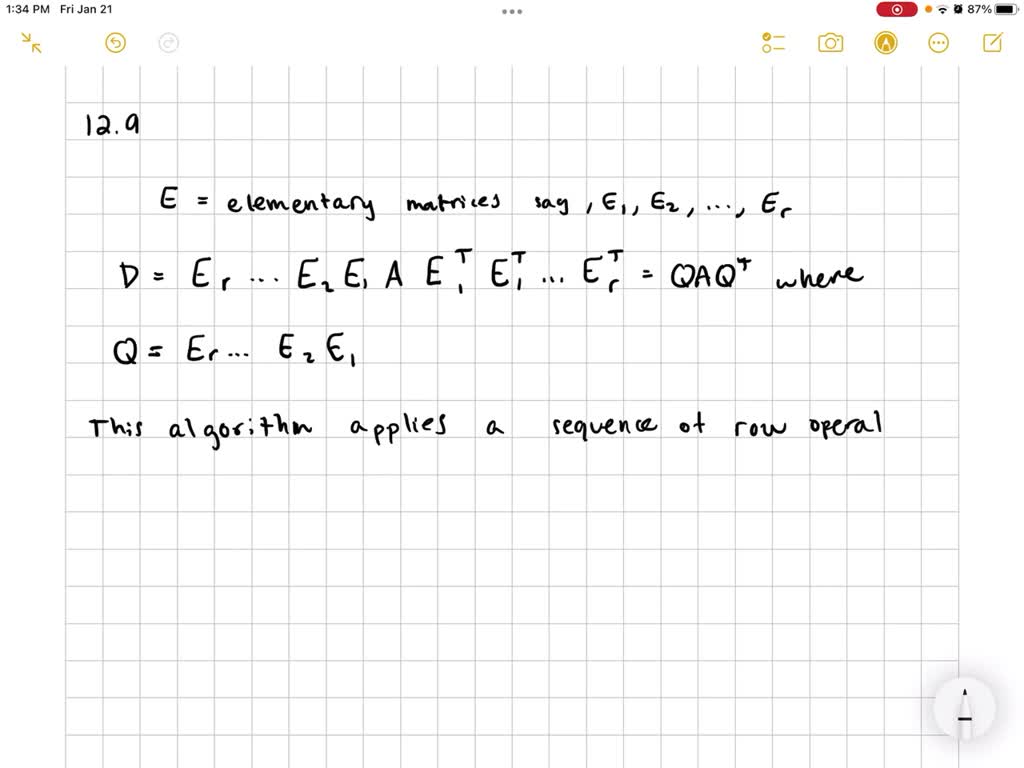 1:34 PM Fri Jan 21 87%
12.9
E = elementary matrices say, E₁, E₂, ..., Eᵣ
D = Eᵣ ... E₂ E₁ A E₁ᵀ E₁ᵀ ... Eᵣᵀ = QAQᵀ where
Q = Eᵣ... E₂ E₁
This algorithm applies a sequence of row operal